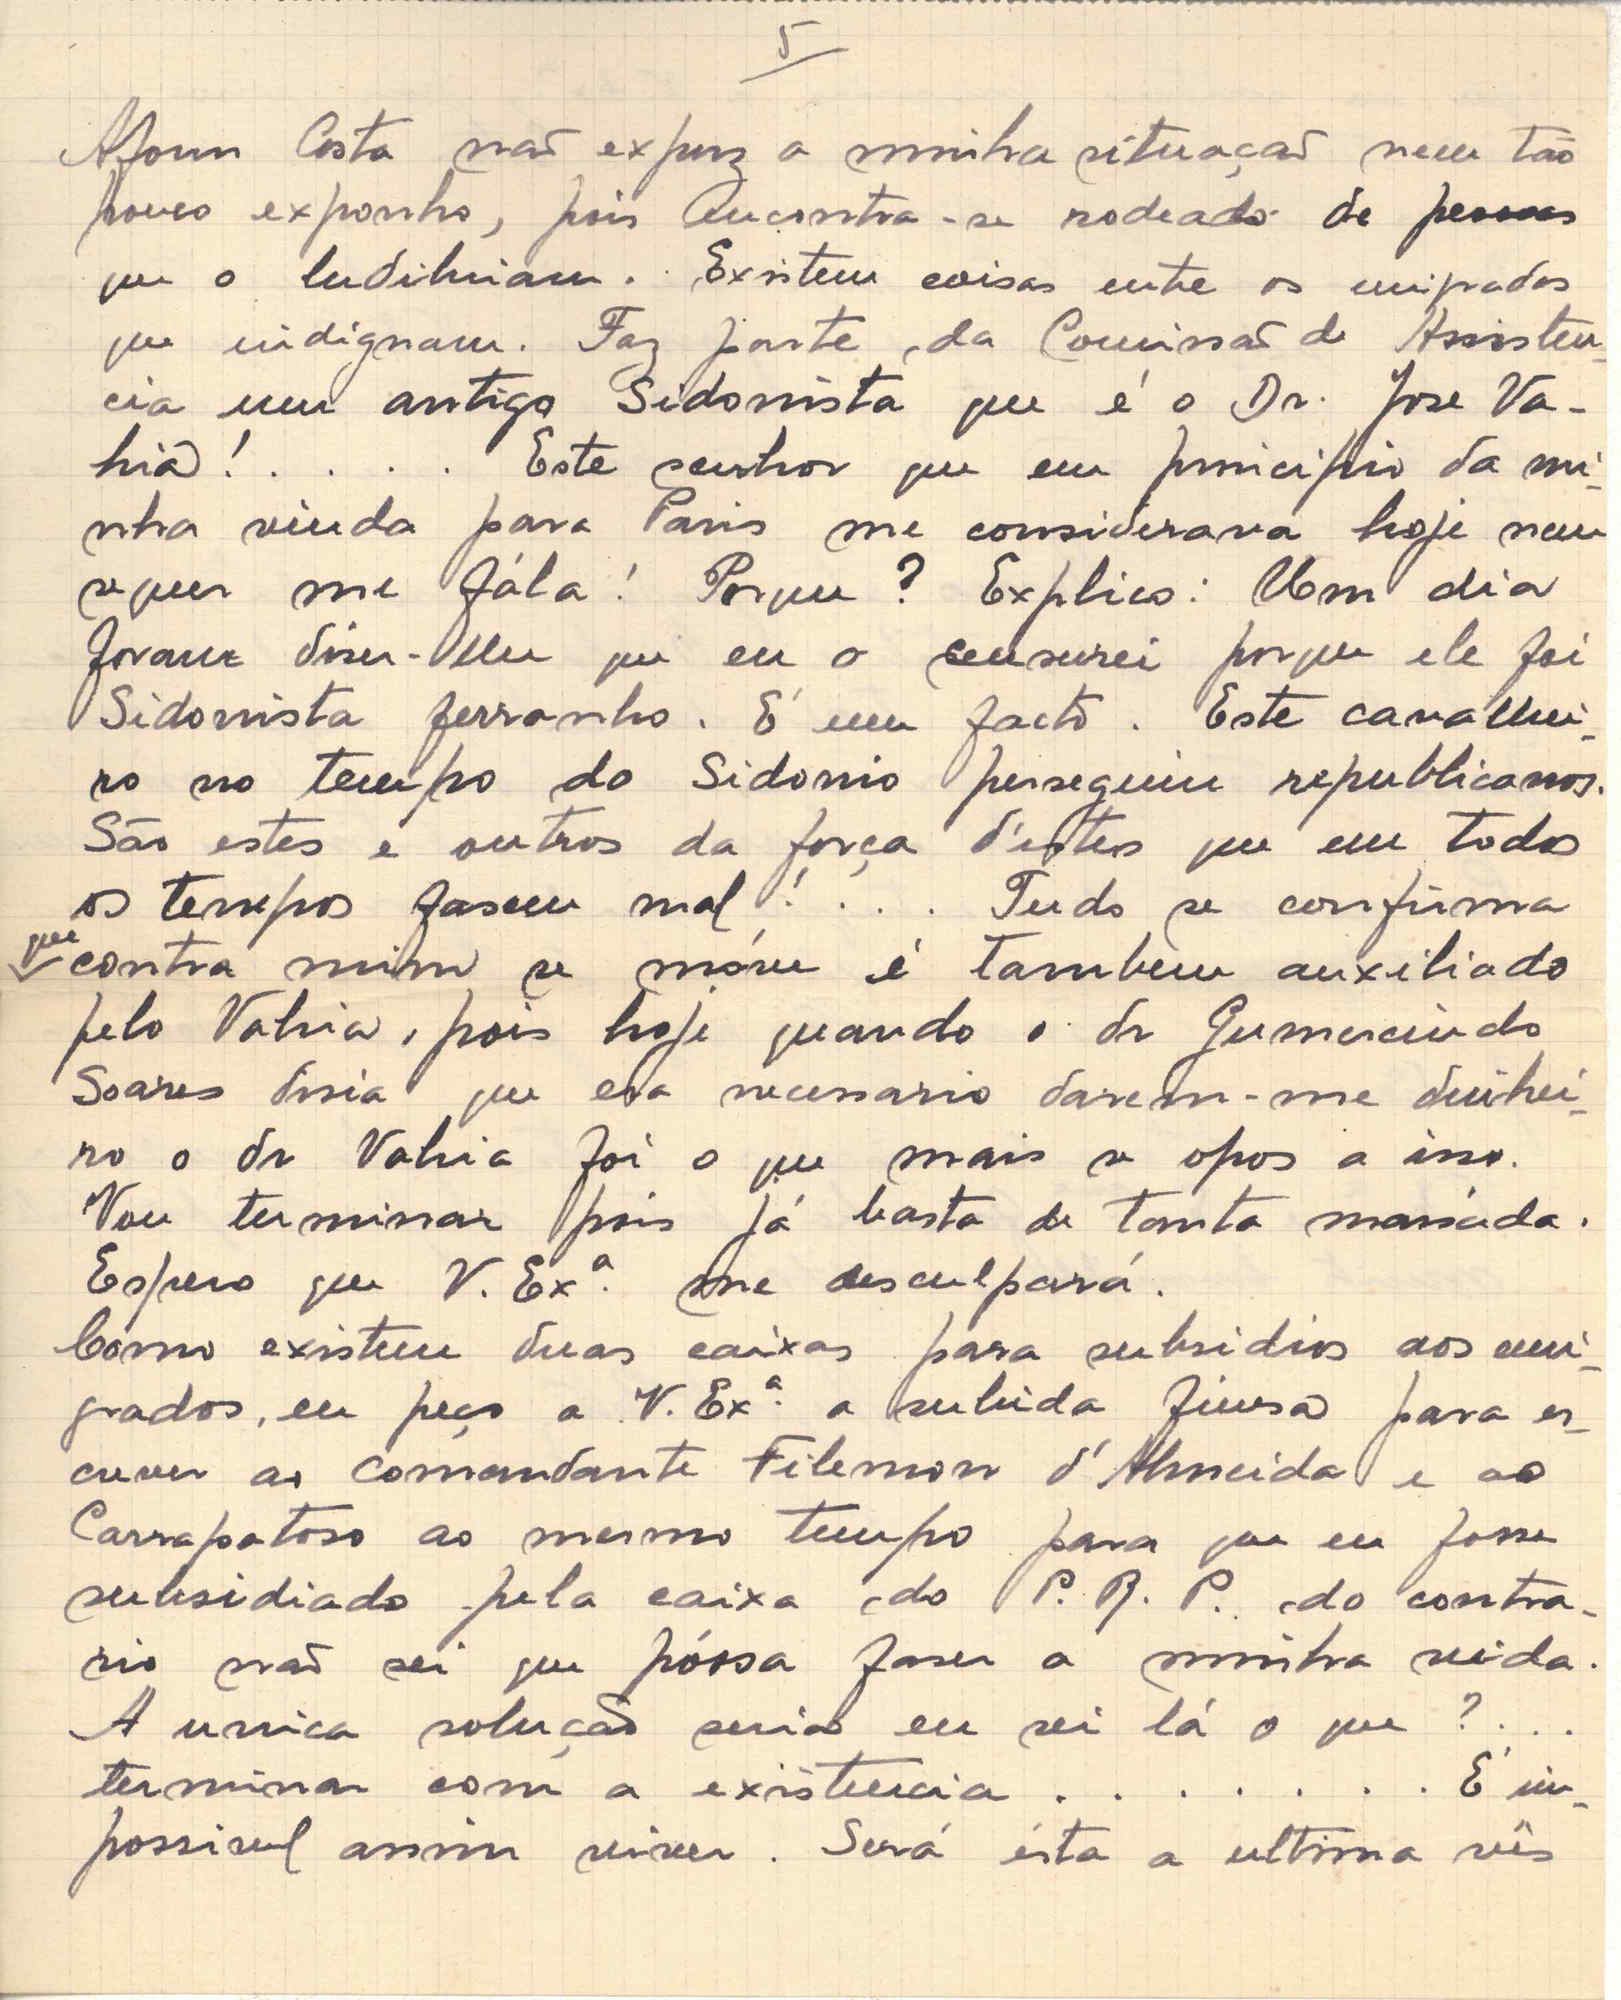 5
Afonso Costa não expuz a minha situação nem tão
pouco exponho, pois encontra-se rodeado de pessoas
que o ludibriam. Existem coisas entre os emigrados
que indignam. Faz parte da Comissão de Assisten-
cia um antigo Sidonista que é o Dr. Jose Va-
hia! . . . . Este senhor que em principio da mi-
nha vinda para Paris me considerava hoje nem
sequer me fála! Porque? Explico: Um dia
foram diser-lhe que eu o censurei porque ele foi
Sidonista ferranho. É um facto. Este cavalhei-
ro no tempo do Sidonio perseguiu republicanos.
São estes e outros da força d'estes que em todos
os tempos fasem mal! . . . Tudo se confirma
que contra mim se móve é tambem auxiliado
pelo Vahia, pois hoje quando o dr Gumercindo
Soares disia que era necessario darem-me dinhei-
ro o dr Vahia foi o que mais se opos a isso.
Vou terminar pois já basta de tanta massáda.
Espero que V. Exª. me desculpará.
Como existem duas caixas para subsidios aos emi-
grados, eu peço a V. Exª. a subida finesa para es-
crever ao Comandante Filemon d'Almeida e ao
Carrapatoso ao mesmo tempo para que eu fosse
subsidiado pela caixa do P. R. P. do contra-
rio não sei que póssa faser a minha vida.
A unica solução seria eu sei lá o que? . . .
terminar com a existencia . . . . . . . É im-
possivel assim viver. Será ésta a ultima vês